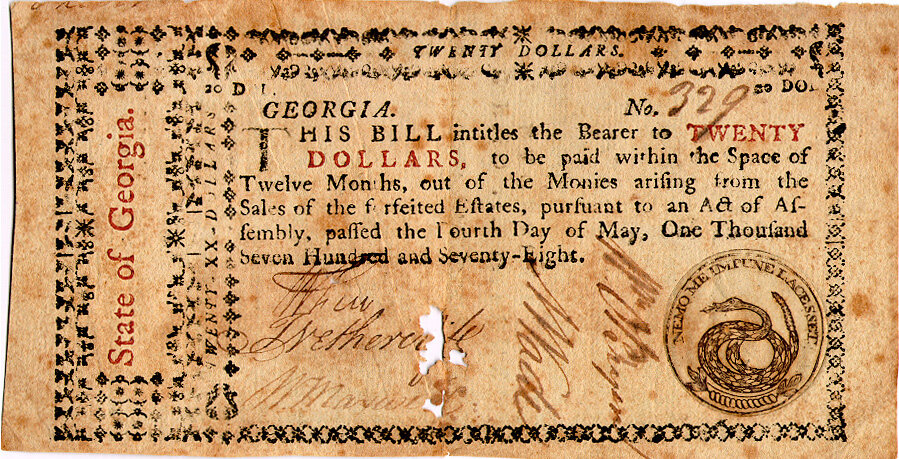 TWENTY DOLLARS.
20 D
20 DO
GEORGIA. No. 329
THIS BILL intitles the Bearer to TWENTY
DOLLARS, to be paid within the Space of
Twelve Months, out of the Monies ariſing from the
Sales of the forfeited Eſtates, purſuant to an Act of Aſ-
ſembly, paſſed the Fourth Day of May, One Thouſand
Seven Hundred and Seventy-Eight.
State of Georgia.
TWENTY-XX-DOLLARS
NEMO ME IMPUNE LACESSET.